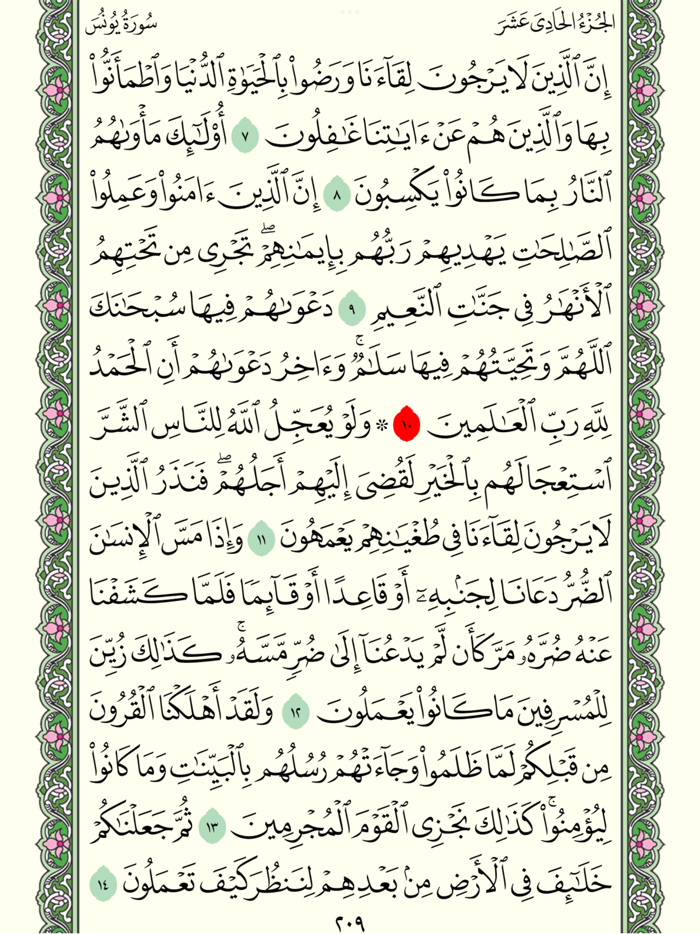 الجُزْءُ الحَادِى عَشَرَ
سُورَةُ يُونُسَ
إِنَّ ٱلَّذِينَ لَا يَرْجُونَ لِقَآءَنَا وَرَضُوا۟ بِٱلْحَيَوٰةِ ٱلدُّنْيَا وَٱطْمَأَنُّوا۟
بِهَا وَٱلَّذِينَ هُمْ عَنْ ءَايَـٰتِنَا غَـٰفِلُونَ ٧ أُو۟لَـٰٓئِكَ مَأْوَىٰهُمُ
ٱلنَّارُ بِمَا كَانُوا۟ يَكْسِبُونَ ٨ إِنَّ ٱلَّذِينَ ءَامَنُوا۟ وَعَمِلُوا۟
ٱلصَّـٰلِحَـٰتِ يَهْدِيهِمْ رَبُّهُم بِإِيمَـٰنِهِمْ ۖ تَجْرِى مِن تَحْتِهِمُ
ٱلْأَنْهَـٰرُ فِى جَنَّـٰتِ ٱلنَّعِيمِ ٩ دَعْوَىٰهُمْ فِيهَا سُبْحَـٰنَكَ
ٱللَّهُمَّ وَتَحِيَّتُهُمْ فِيهَا سَلَـٰمٌ ۚ وَءَاخِرُ دَعْوَىٰهُمْ أَنِ ٱلْحَمْدُ
لِلَّهِ رَبِّ ٱلْعَـٰلَمِينَ ١٠ ۞ وَلَوْ يُعَجِّلُ ٱللَّهُ لِلنَّاسِ ٱلشَّرَّ
ٱسْتِعْجَالَهُم بِٱلْخَيْرِ لَقُضِىَ إِلَيْهِمْ أَجَلُهُمْ ۖ فَنَذَرُ ٱلَّذِينَ
لَا يَرْجُونَ لِقَآءَنَا فِى طُغْيَـٰنِهِمْ يَعْمَهُونَ ١١ وَإِذَا مَسَّ ٱلْإِنسَـٰنَ
ٱلضُّرُّ دَعَانَا لِجَنۢبِهِۦٓ أَوْ قَاعِدًا أَوْ قَآئِمًا فَلَمَّا كَشَفْنَا
عَنْهُ ضُرَّهُۥ مَرَّ كَأَن لَّمْ يَدْعُنَآ إِلَىٰ ضُرٍّ مَّسَّهُۥ ۚ كَذَٰلِكَ زُيِّنَ
لِلْمُسْرِفِينَ مَا كَانُوا۟ يَعْمَلُونَ ١٢ وَلَقَدْ أَهْلَكْنَا ٱلْقُرُونَ
مِن قَبْلِكُمْ لَمَّا ظَلَمُوا۟ وَجَآءَتْهُمْ رُسُلُهُم بِٱلْبَيِّنَـٰتِ وَمَا كَانُوا۟
لِيُؤْمِنُوا۟ ۚ كَذَٰلِكَ نَجْزِى ٱلْقَوْمَ ٱلْمُجْرِمِينَ ١٣ ثُمَّ جَعَلْنَـٰكُمْ
خَلَـٰٓئِفَ فِى ٱلْأَرْضِ مِنۢ بَعْدِهِمْ لِنَنظُرَ كَيْفَ تَعْمَلُونَ ١٤
٢٠٩